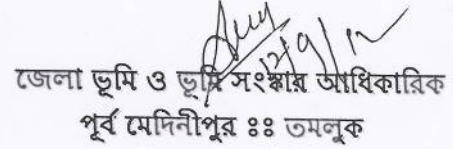 12/9/12
জেলা ভূমি ও ভূমি সংস্কার আধিকারিক
পূর্ব মেদিনীপুর ঃঃ তমলুক